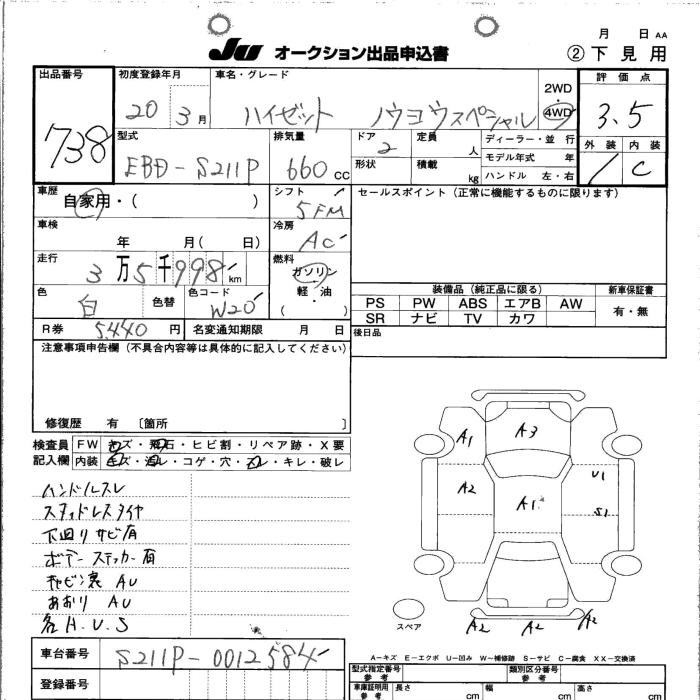 月 日 AA
JU オークション出品申込書 ②下見用
出品番号 初度登録年月 車名・グレード 2WD・4WD 評価点
738 20 3月 ハイゼット ノウヨウスペシャル 3.5
型式 排気量 ドア 定員 ディーラー・並行 外装 内装
EBD-S211P 660cc 2 人 モデル年式 年 / C
形状 積載 kg ハンドル 左・右
車歴 自家用・( ) シフト セールスポイント(正常に機能するものに限ります)
5FM
車検 冷房
年 月( 日) AC
走行 燃料
3万5千998km ガソリン・軽・油
色 色替 色コード ( ) 装備品(純正品に限る) 新車保証書
白 W20 PS PW ABS エアB AW 有・無
SR ナビ TV カワ
R券 5,440円 名変通知期限 月 日 後日品
注意事項申告欄(不具合内容等は具体的に記入してください)
修復歴 有 〔箇所 〕
検査員 FW キズ・飛石・ヒビ割・リペア跡・X要
記入欄 内装 キズ・汚レ・コゲ・穴・スレ・キレ・破レ
ハンドルスレ
スタッドレスタイヤ
下回りサビ有
ボデーステッカー有
キャビン裏 AU
あおり AU
各H.U.S
A1 A3
A2 A1 U1
S1
スペア A2 A2 A2
A-キズ E-エクボ U-凹み W-補修跡 S-サビ C-腐食 XX-交換済
車台番号 S211P-0012584
登録番号
型式指定番号 参考 類別区分番号 参考
車庫証明用 参考 長さ cm 幅 cm 高さ cm